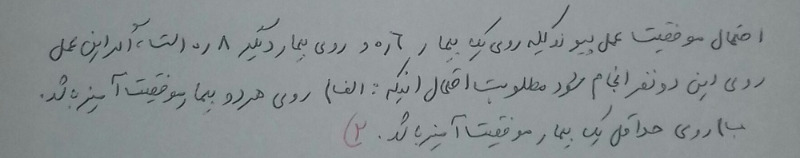 احتمال موفقیت عمل پیوند کلیه روی یک بیمار ۰٫۶ و روی بیمار دیگر ۰٫۸ است، اگر این عمل
روی این دو نفر انجام شود مطلوبست احتمال اینکه : الف) روی هر دو بیمار موفقیت آمیز باشد.
ب) روی حداقل یک بیمار موفقیت آمیز باشد. (۲